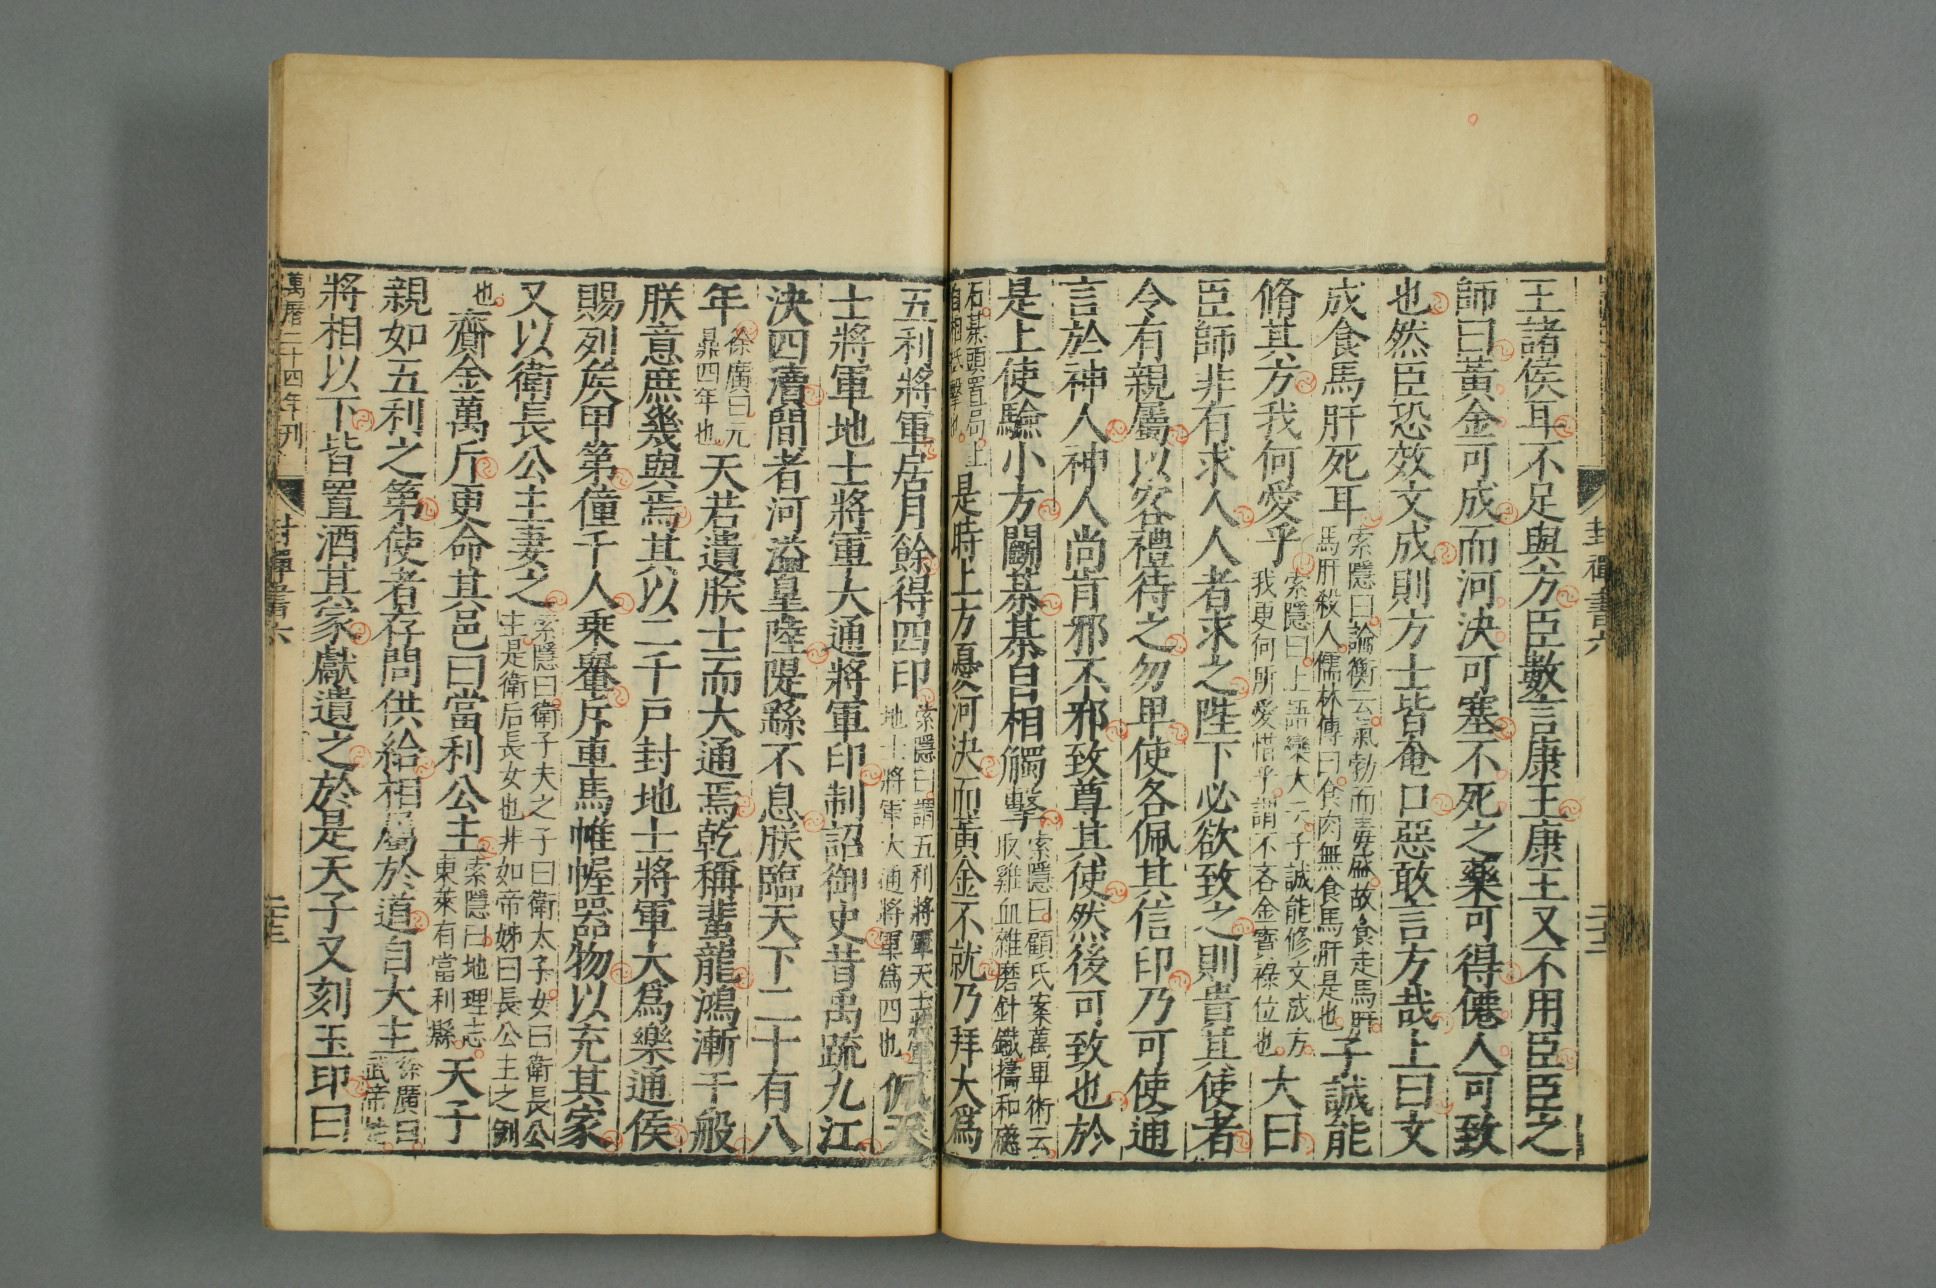 王諸侯耳不足與方臣數言康王康王又不用臣臣之
師曰黃金可成而河決可塞不死之藥可得僊人可致
也然臣恐效文成則方士皆奄口惡敢言方哉上曰文
成食馬肝死耳索隱曰論衡云氣勃而毒螫故食走馬肝馬肝殺人儒林傳曰食肉無食馬肝是也子誠能
脩其方我何愛乎索隱曰上語欒大云子誠能修文成方我更何所愛惜乎謂不吝金寶祿位也大曰
臣師非有求人人者求之陛下必欲致之則貴其使者
令有親屬以客禮待之勿卑使各佩其信印乃可使通
言於神人神人尚肯邪不邪致尊其使然後可致也於
是上使驗小方鬬棊棊自相觸擊索隱曰顧氏案萬畢術云取雞血雜磨針鐵擣和磁
石棊頭置局上自相抵擊也是時上方憂河決而黃金不就乃拜大爲
五利將軍居月餘得四印索隱曰謂五利將軍天士將軍地士將軍大通將軍爲四也佩天
士將軍地士將軍大通將軍印制詔御史昔禹疏九江
決四瀆間者河溢皐陸隄繇不息朕臨天下二十有八
年徐廣曰元鼎四年也天若遺朕士而大通焉乾稱蜚龍鴻漸于般
朕意庶幾與焉其以二千戶封地士將軍大爲樂通侯
賜列侯甲第僮千人乗轝斥車馬帷幄器物以充其家
又以衛長公主妻之索隱曰衛子夫之子曰衛太子女曰衛長公主是衛后長女也非如帝姊曰長公主之例
也齎金萬斤更命其邑曰當利公主索隱曰地理志東萊有當利縣天子
親如五利之第使者存問供給相屬於道自大主徐廣曰武帝
將相以下皆置酒其家獻遺之於是天子又刻玉印曰
萬曆二十四年刊
封禪書六
二十三
封禪書六